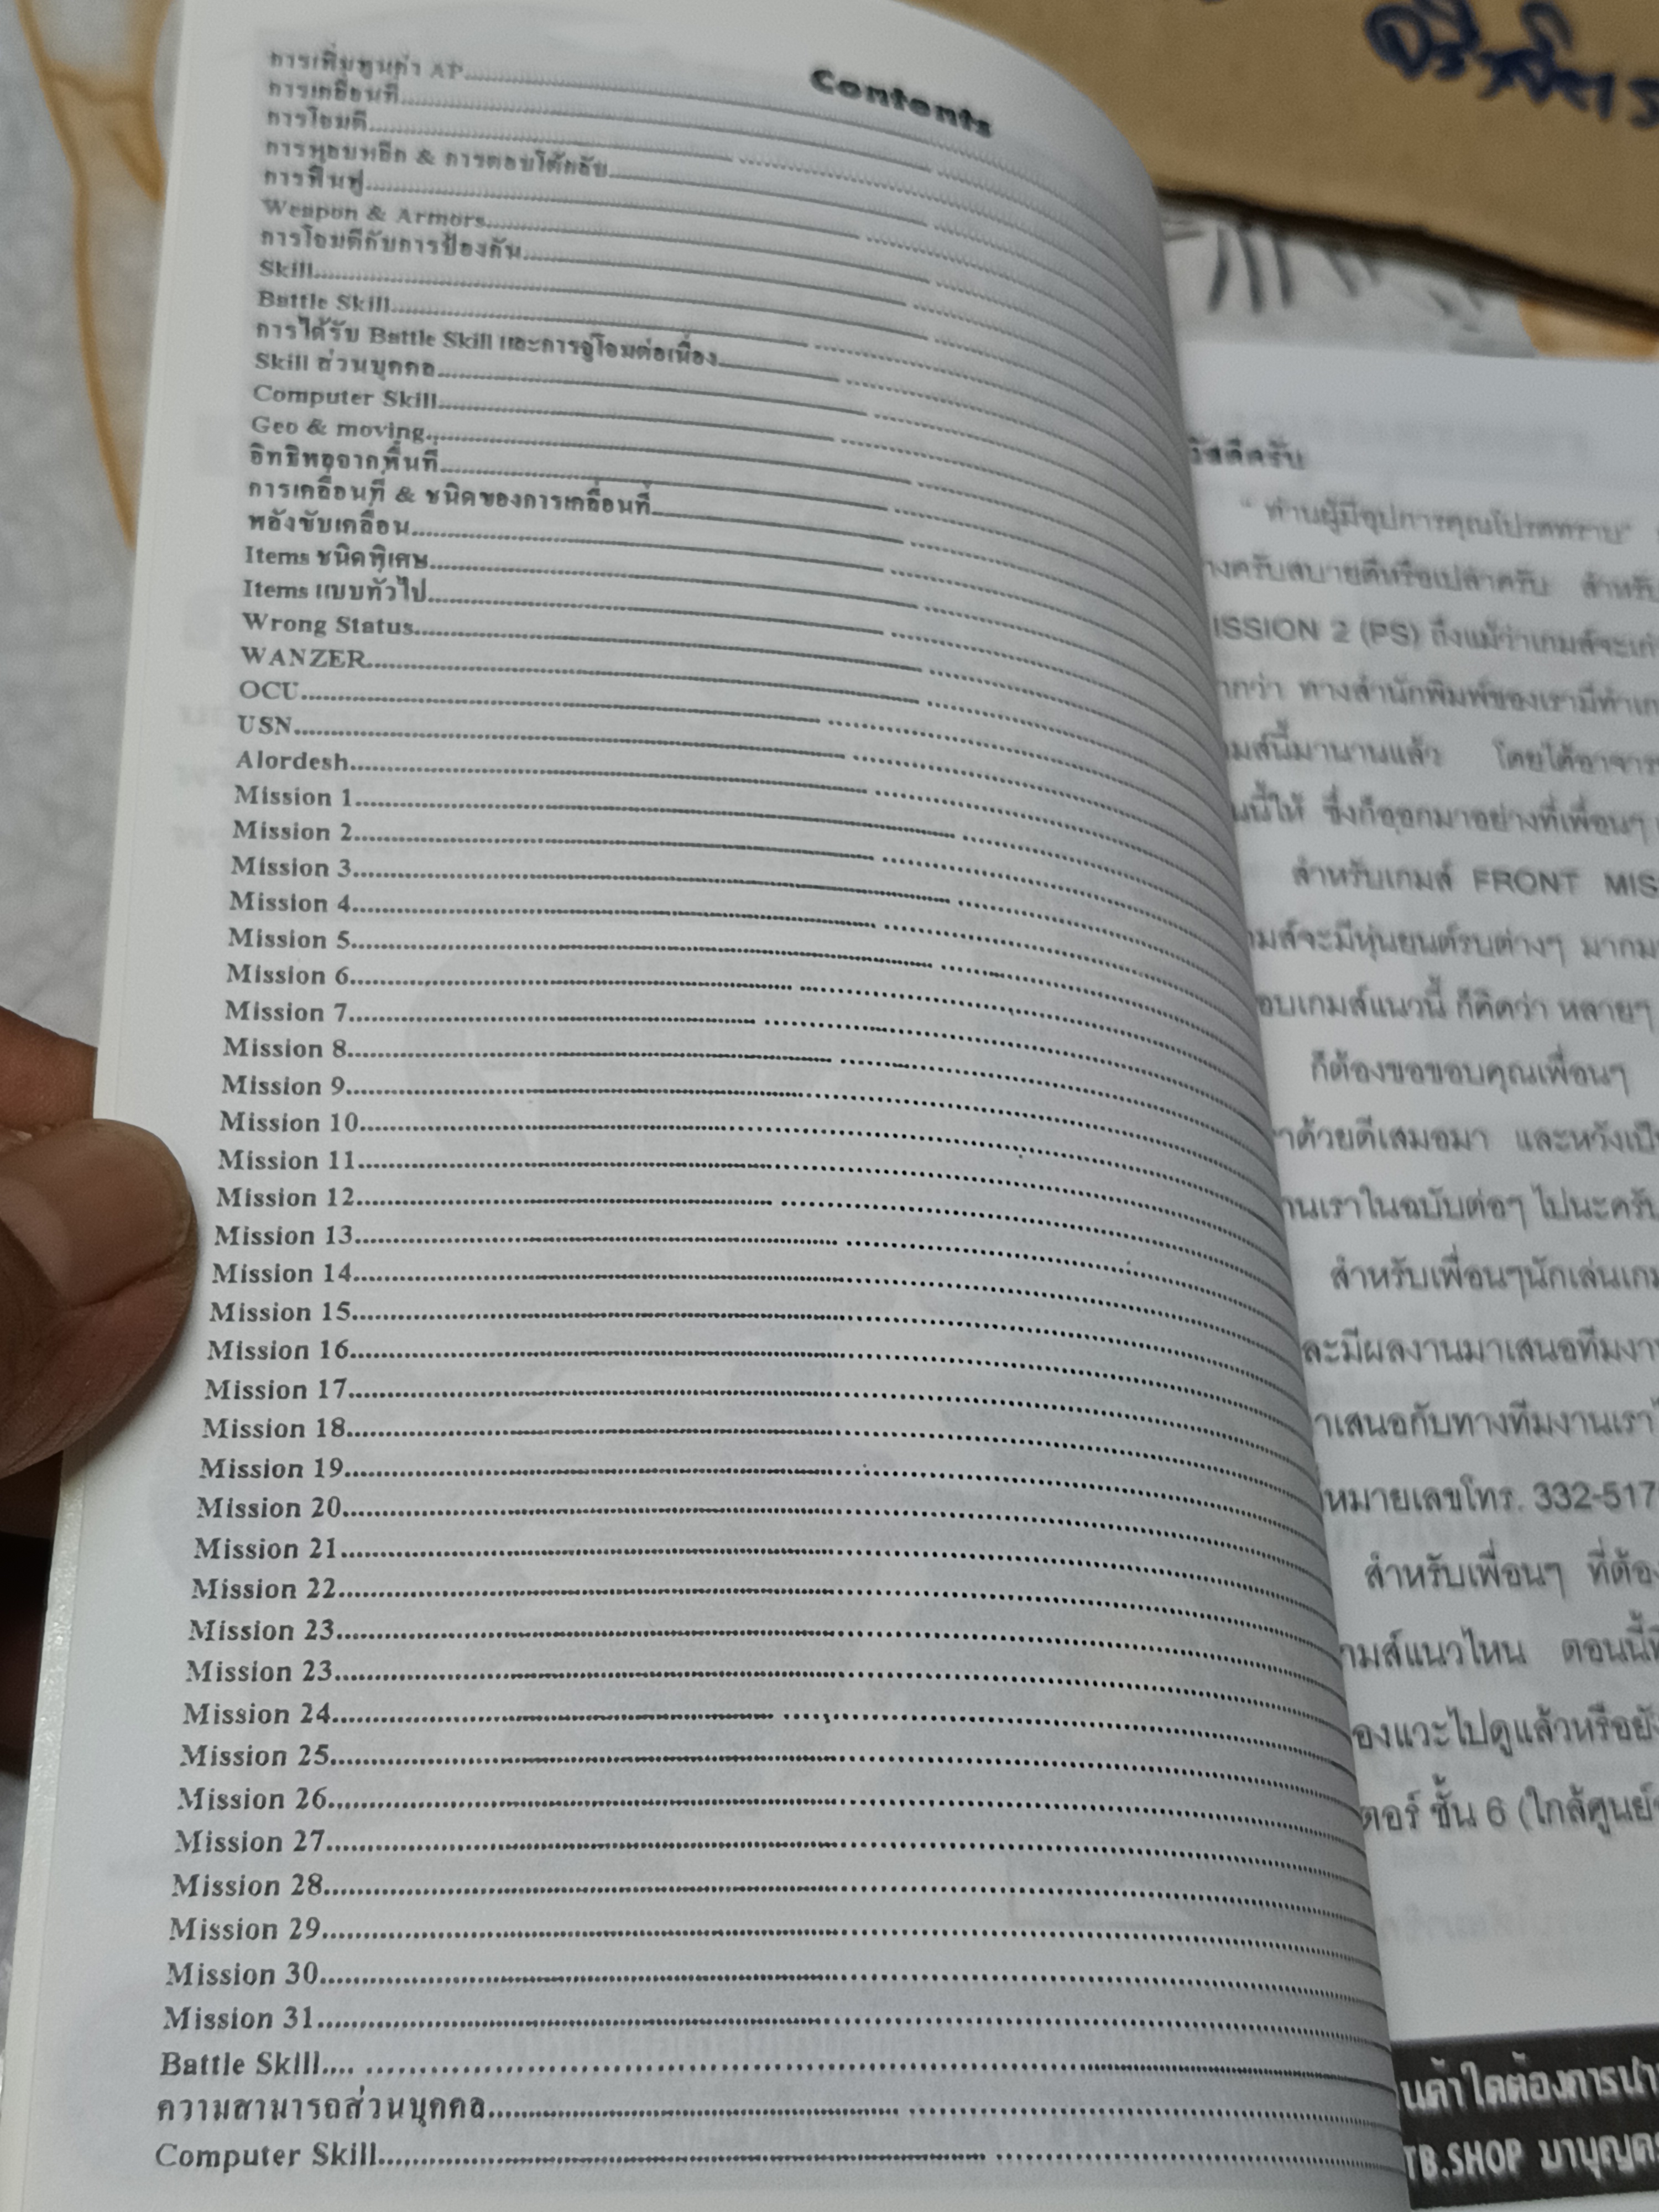 Contents
การเพิ่มพูนค่า AP
การเคลื่อนที่
การโจมตี
การหลบหลีก & การตอบโต้กลับ
การฟื้นฟู
Weapon & Armors
การโจมตีกับการป้องกัน
Skill
Battle Skill
การได้รับ Battle Skill และการจู่โจมต่อเนื่อง
Skill ส่วนบุคคล
Computer Skill
Geo & moving
อิทธิพลจากพื้นที่
การเคลื่อนที่ & ชนิดของการเคลื่อนที่
พลังขับเคลื่อน
Items ชนิดพิเศษ
Items แบบทั่วไป
Wrong Status
WANZER
OCU
USN
Alordesh
Mission 1
Mission 2
Mission 3
Mission 4
Mission 5
Mission 6
Mission 7
Mission 8
Mission 9
Mission 10
Mission 11
Mission 12
Mission 13
Mission 14
Mission 15
Mission 16
Mission 17
Mission 18
Mission 19
Mission 20
Mission 21
Mission 22
Mission 23
Mission 23
Mission 24
Mission 25
Mission 26
Mission 27
Mission 28
Mission 29
Mission 30
Mission 31
Battle Skill
ความสามารถส่วนบุคคล
Computer Skill
วัสดีครับ
" ท่านผู้มีอุปการคุณโปรดทราบ"
างครับสบายดีหรือเปล่าครับ สำหรับ
ISSION 2 (PS) ถึงแม้ว่าเกมส์จะเก่
ากว่า ทางสำนักพิมพ์ของเรามีทำเก
มส์นี้มานานแล้ว โดยได้อาจาร
นนี้ให้ ซึ่งก็ออกมาอย่างที่เพื่อนๆ
สำหรับเกมส์ FRONT MIS
มส์จะมีหุ่นยนต์รบต่างๆ มากม
อบเกมส์แนวนี้ ก็คิดว่า หลายๆ
ก็ต้องขอขอบคุณเพื่อนๆ
าด้วยดีเสมอมา และหวังเป็
านเราในฉบับต่อๆ ไปนะครับ
สำหรับเพื่อนๆนักเล่นเกม
ละมีผลงานมาเสนอทีมงา
าเสนอกับทางทีมงานเรา
หมายเลขโทร. 332-517
สำหรับเพื่อนๆ ที่ต้อง
ามส์แนวไหน ตอนนี้
องแวะไปดูแล้วหรือยัง
ตอร์ ชั้น 6 (ใกล้ศูนย์
นค้าใดต้องการ
TB.SHOP มาบุญค